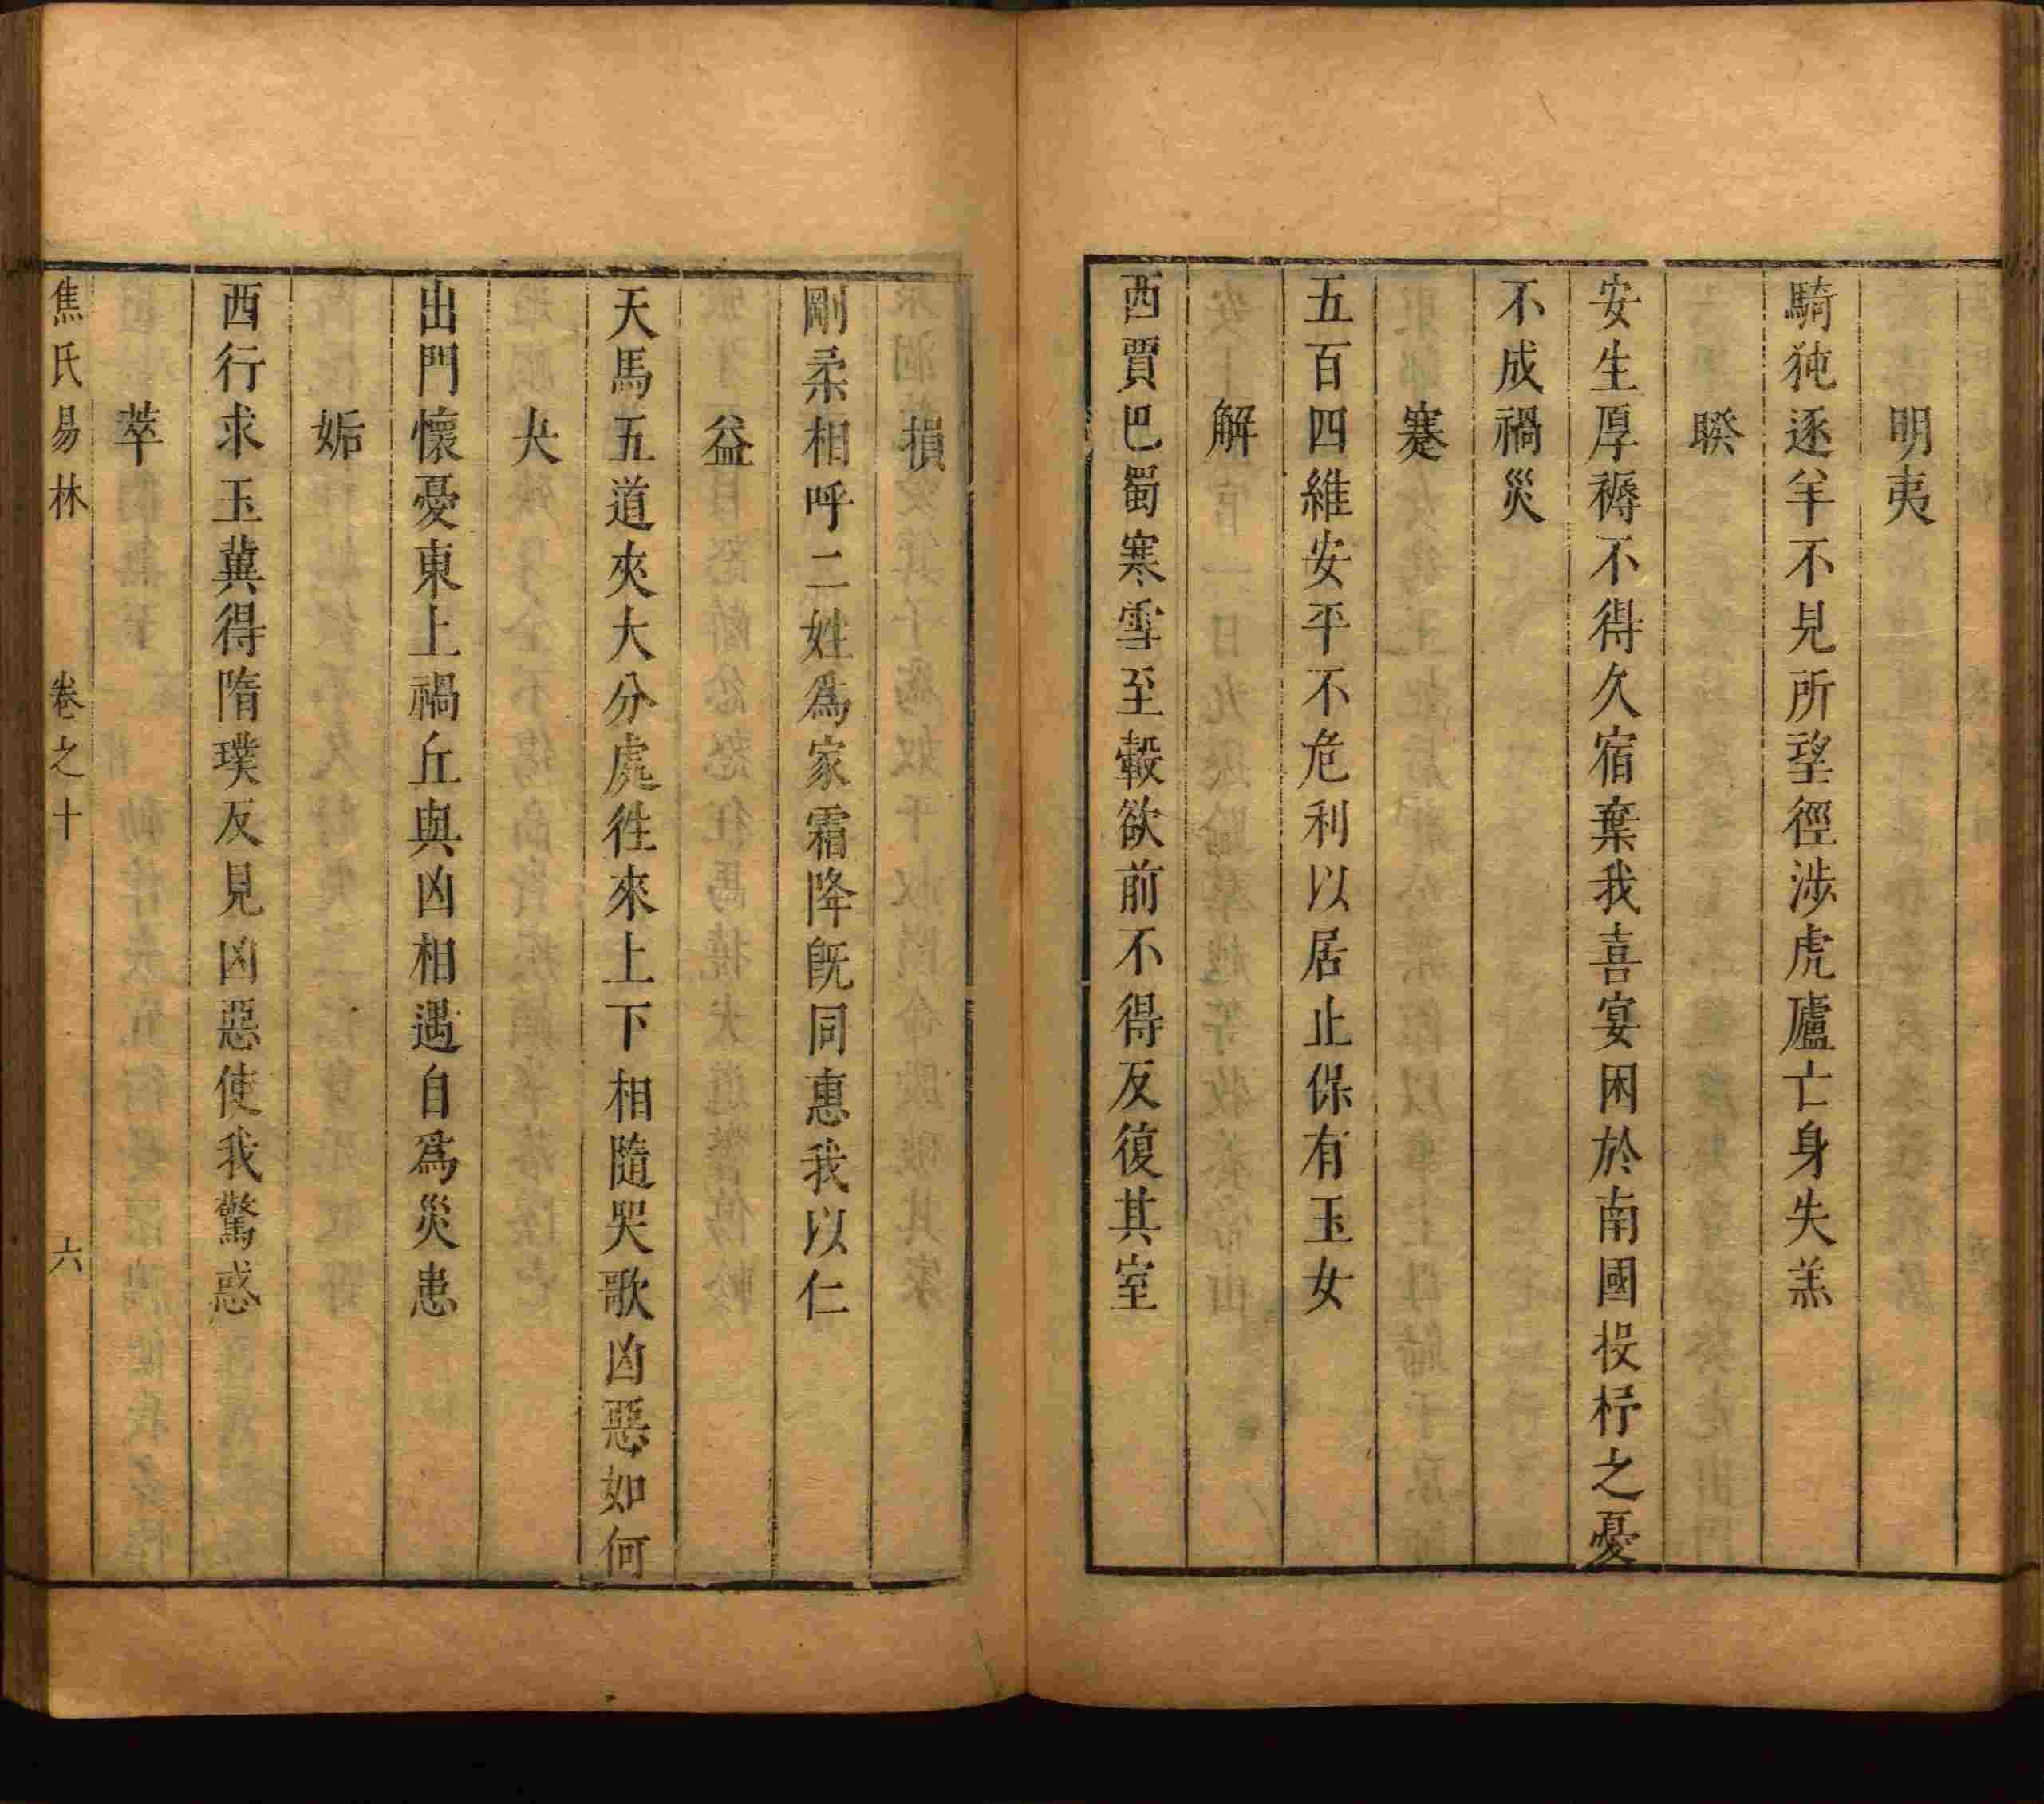 明夷
騎㹠逐羊不見所望徑涉虎廬亡身失羔
睽
安生厚褥不得久宿棄我喜宴困於南國投杼之憂
不成禍災
蹇
五百四維安平不危利以居止保有玉女
解
西賈巴蜀寒雪至轂欲前不得反復其室
損
剛柔相呼二姓爲家霜降旣同惠我以仁
益
天馬五道夾大分處徃來上下相隨哭歌凶惡如何
夬
出門懷憂東上禍丘與凶相遇自爲災患
姤
西行求玉冀得隋璞反見凶惡使我驚惑
萃
焦氏易林 卷之十 六